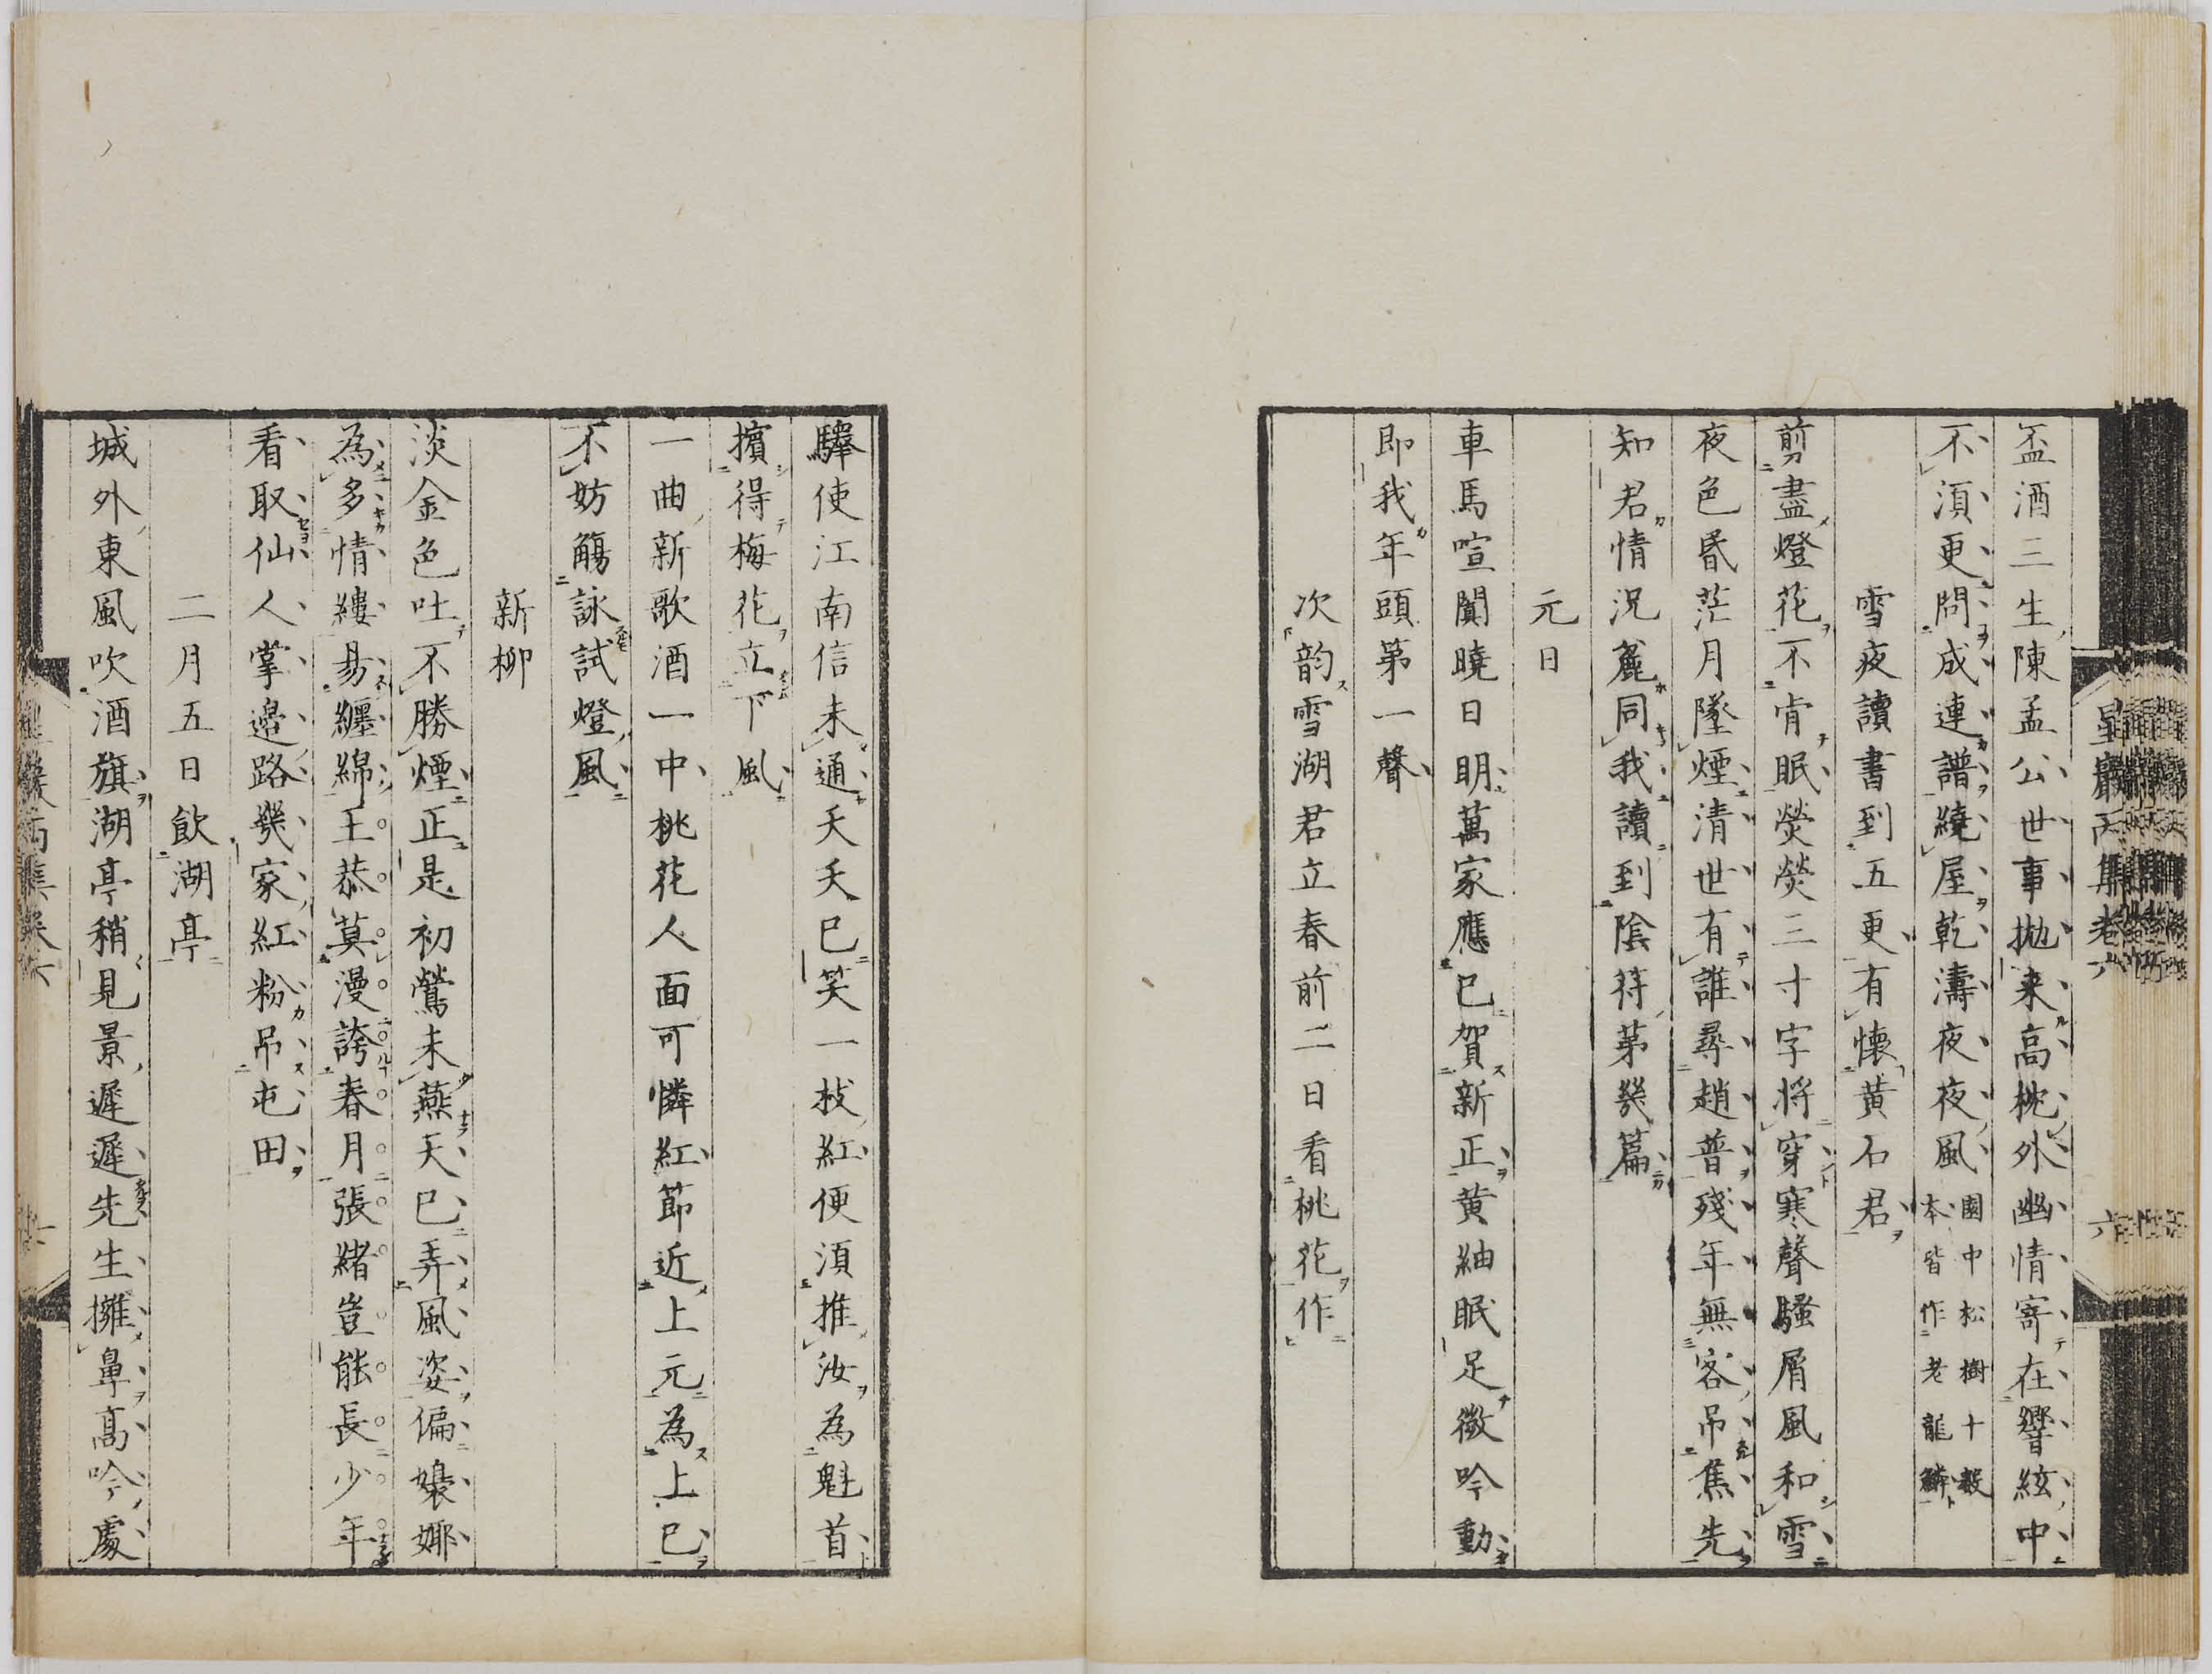 盃酒三生陳孟公世事拋来高枕外幽情寄在響絃中
不湏更問成連譜繞屋乾濤夜夜風園中松樹十數本皆作老龍鱗
雪夜讀書到五更有懷黃石君
剪盡燈花不肯眠熒熒三寸字將穿寒聲騷屑風和雪
夜色昏茫月墜煙清世有誰尋趙普殘年無客吊焦先
知君情況麁同我讀到陰符第幾篇
元日
車馬喧闐曉日明萬家應已賀新正黃紬眠足微吟動
即我年頭第一聲
次韵雪湖君立春前二日看桃花作
驛使江南信未通夭夭已笑一枝紅便湏推汝為魁首
擯得梅花立下風
一曲新歌酒一中桃花人面可憐紅節近上元為上巳
不妨觴詠試燈風
新柳
淡金色吐不勝煙正是初鶯未燕天已弄風姿偏嬝娜
為多情縷易纏綿王恭莫漫誇春月張緒豈能長少年
看取仙人掌邊路幾家紅粉吊屯田
二月五日飲湖亭
城外東風吹酒旗湖亭稍見景遲遲先生擁鼻高吟處
星巖丙集卷六
六